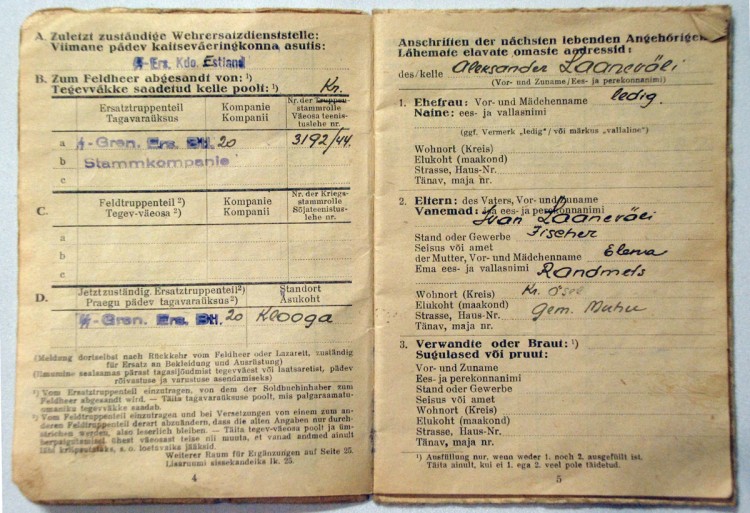 A. Zuletzt zuständige Wehrersatzdienststelle:
Viimane pädev kaitseväeringkonna asutis:
ᛋᛋ-Ers. Kdo. Estland
B. Zum Feldheer abgesandt von: ¹)
Tegevväkke saadetud kelle poolt: ¹)
Kr.
Ersatztruppenteil
Tagavaraüksus
Kompanie
Kompanii
Nr. der Truppen-
stammrolle
Väeosa teenis-
tuslehe nr.
a ᛋᛋ-Gren. Ers. Btl. 20 3192/44.
b Stammkompanie
c
C. Feldtruppenteil ²)
Tegev-väeosa ²)
Kompanie
Kompanii
Nr. der Kriegs-
stammrolle
Sõjateenistus-
lehe nr.
a
b
c
D. Jetzt zuständig. Ersatztruppenteil²)
Praegu pädev tagavaraüksus²)
Standort
Asukoht
ᛋᛋ-Gren. Ers. Btl. 20 Klooga
(Meldung dortselbst nach Rückkehr vom Feldheer oder Lazarett, zuständig
für Ersatz an Bekleidung und Ausrüstung)
(Ilmumine sealsamas pärast tagasijõudmist tegevväest või laatsaretist, pädev
rõivastuse ja varustuse asendamiseks)
¹) Vom Ersatztruppenteil einzutragen, von dem der Soldbuchinhaber zum
Feldheer abgesandt wird. — Täita tagavaraüksuse poolt, mis palgaraamatu-
omaniku tegevväkke saadab.
²) Vom Feldtruppenteil einzutragen und bei Versetzungen von einem zum an-
deren Feldtruppenteil derart abzuändern, dass die alten Angaben nur durch-
strichen werden, also leserlich bleiben. — Täita tegev-väeosa poolt ja üm-
berpaigutamisel ühest väeosast teise nii muuta, et vanad andmed ainult
läbi kriipsutataks, s. o. loetavaiks jääksid.
Weiterer Raum für Ergänzungen auf Seite 25.
Lisaruumi sissekandeiks lk. 25.
4
Anschriften der nächsten lebenden Angehörigen
Lähemate elavate omaste aadressid:
des/kelle Aleksander Laaneväli
(Vor- und Zuname/Ees- ja perekonnanimi)
1. Ehefrau: Vor- und Mädchenname ledig.
Naine: ees- ja vallasnimi
(ggf. Vermerk „ledig"/ või märkus „vallaline")
Wohnort (Kreis)
Elukoht (maakond)
Strasse, Haus-Nr.
Tänav, maja nr.
2. Eltern: des Vaters, Vor- und Zuname
Vanemad: isa ees- ja perekonnanimi
Ivan Laaneväli
Stand oder Gewerbe Fischer
Seisus või amet
der Mutter, Vor- und Mädchenname Elena
Ema ees- ja vallasnimi Randmets
Wohnort (Kreis) Kr. Ösel
Elukoht (maakond)
Strasse, Haus-Nr. Gem. Muhu
Tänav, maja nr.
3. Verwandte oder Braut: ¹)
Sugulased või pruut:
Vor- und Zuname
Ees- ja perekonnanimi
Stand oder Gewerbe
Seisus või amet
Wohnort (Kreis)
Elukoht (maakond)
Strasse, Haus-Nr.
Tänav, maja nr.
¹) Ausfüllung nur, wenn weder 1. noch 2. ausgefüllt ist.
Täita ainult, kui ei 1. ega 2. veel pole täidetud.
5